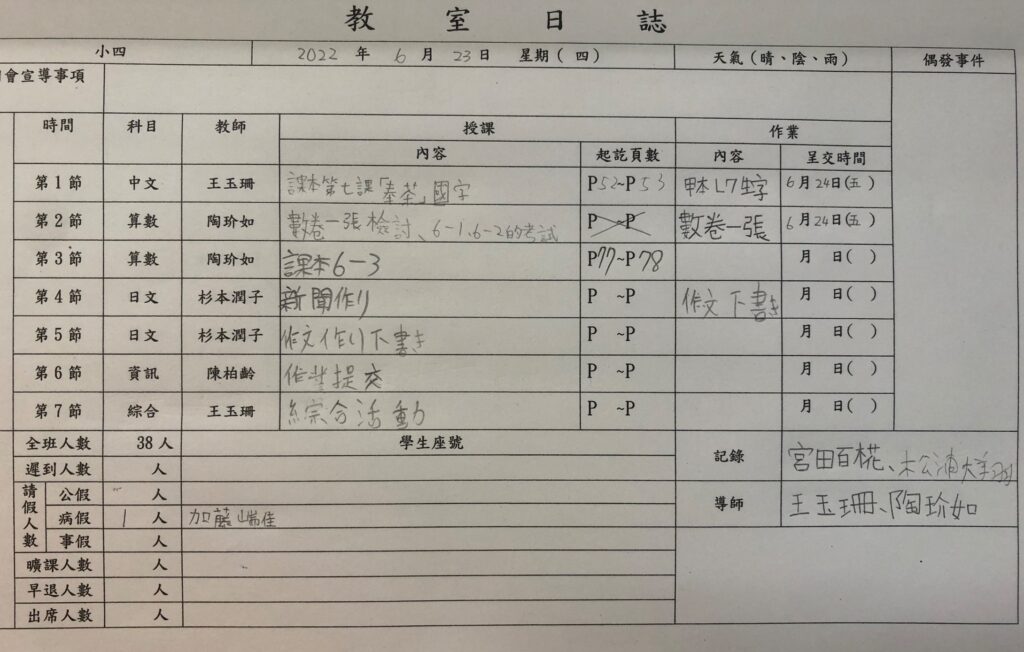 教室日誌
小四 2022 年 6 月 23 日 星期(四) 天氣(晴、陰、雨) 偶發事件
會宣導事項
時間 科目 教師 授課 作業
內容 起訖頁數 內容 呈交時間
第1節 中文 王玉珊 課本第七課「奉茶」國字 P52~P53 甲本L7生字 6月24日(五)
第2節 算數 陶玠如 數卷一張檢討、6-1、6-2的考試 P ~P 數卷一張 6月24日(五)
第3節 算數 陶玠如 課本6-3 P77~P78 月 日( )
第4節 日文 杉本潤子 新聞作り P ~P 作文下書き 月 日( )
第5節 日文 杉本潤子 作文作り下書き P ~P 月 日( )
第6節 資訊 陳柏齡 作業提交 P ~P 月 日( )
第7節 綜合 王玉珊 綜合活動 P ~P 月 日( )
全班人數 38人 學生座號 記錄 宮田百椛、松浦大翔
遲到人數 人
請假人數 公假 人 導師 王玉珊、陶玠如
病假 1 人 加藤端佳
事假 人
曠課人數 人
早退人數 人
出席人數 人